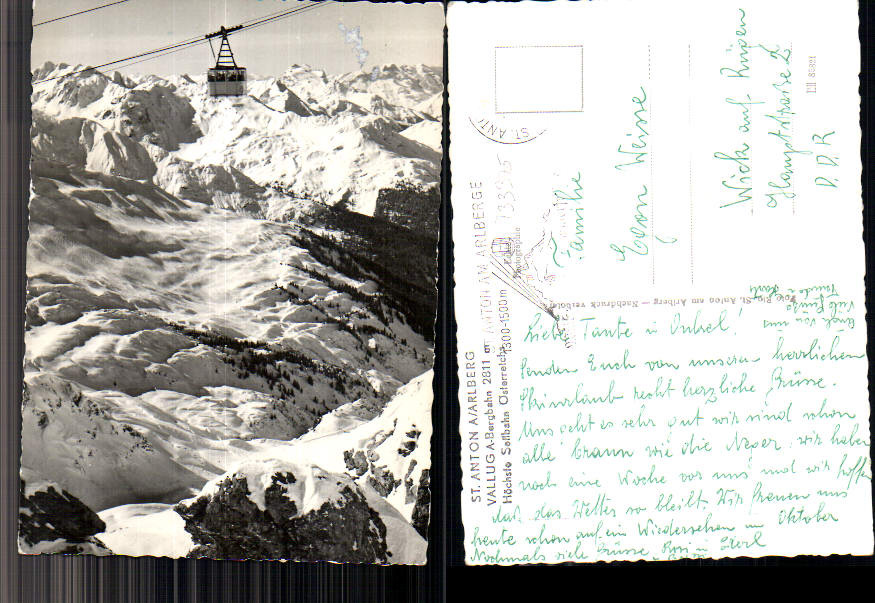 ST. ANTON A/ARLBERG
VALLUGA-Bergbahn 2811 m
Höchste Seilbahn Österreichs
ST. ANTON AM ARLBERGE
1300-1500m
ST. ANT
Echte Photographie
Foto St. Anton am Arlberg — Nachdruck verboten
Familie
Egon Weisse
Wiek auf Rügen
Hauptstrasse 2
D.D.R
Liebe Tante u Onkel!
Senden Euch von unseren herrlichen
Skiurlaub recht herzliche Grüsse.
Uns geht es sehr gut wir sind schon
alle braun wie die Neger. wir haben
noch eine Woche vor uns und wir hoffen
daß das Wetter so bleibt. Wir freuen uns
heute schon auf ein Wiedersehen im Oktober
Nochmals viele Grüsse Rosi u
auch von uns
viele Grüsse